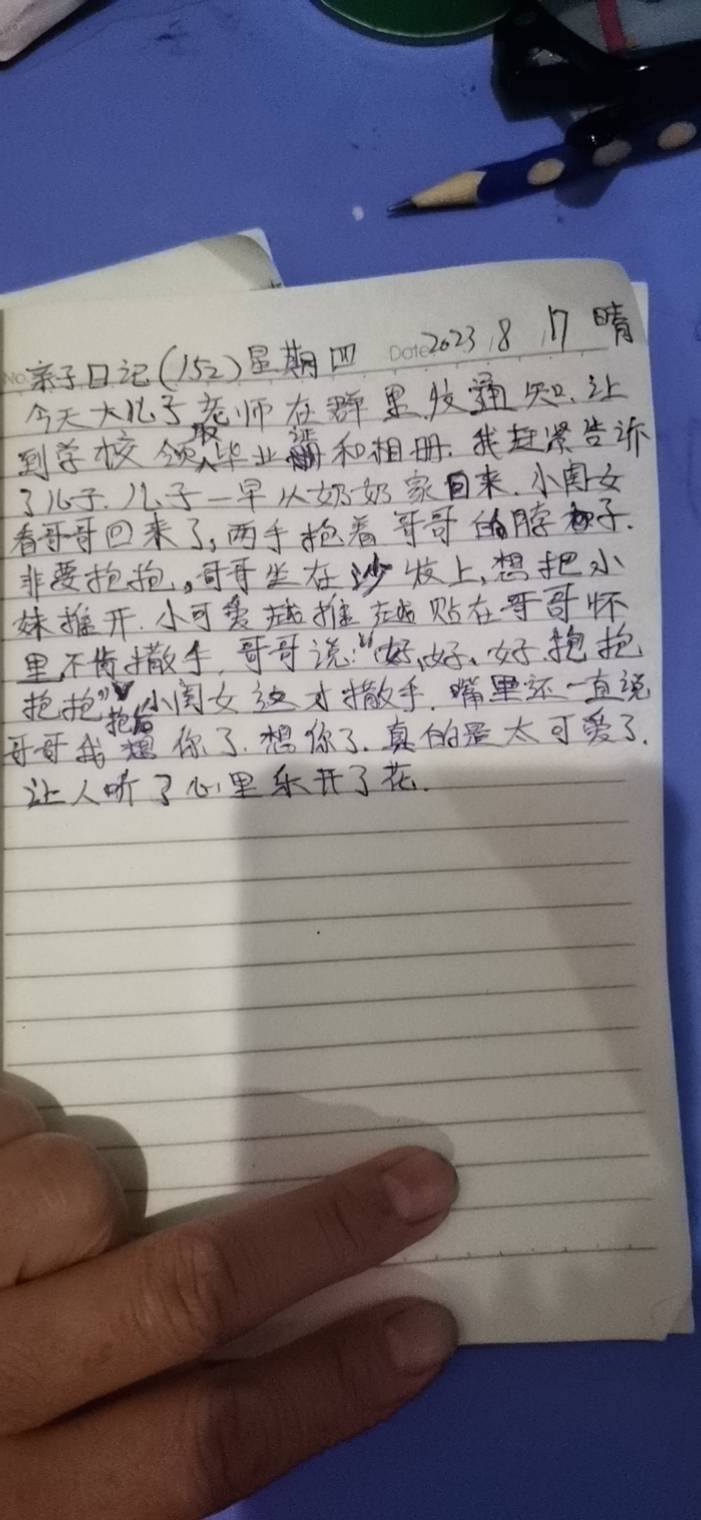 No. 亲子日记(152)星期四 Date 2023 8 17 晴
今天大儿子老师在群里发通知.让
到学校领取毕业证和相册.我赶紧告诉
了儿子.儿子一早从奶奶家回来.小闺女
看哥哥回来了,两手抱着哥哥的脖子.
非要抱抱。哥哥坐在沙发上,想把小
妹推开.小可爱越推越贴在哥哥怀
里不肯撒手.哥哥说:“好、好、好.抱抱
抱抱”抱后小闺女这才撒手.嘴里还一直说
哥哥我想你了.想你了.真的是太可爱了.
让人听了心里乐开了花.